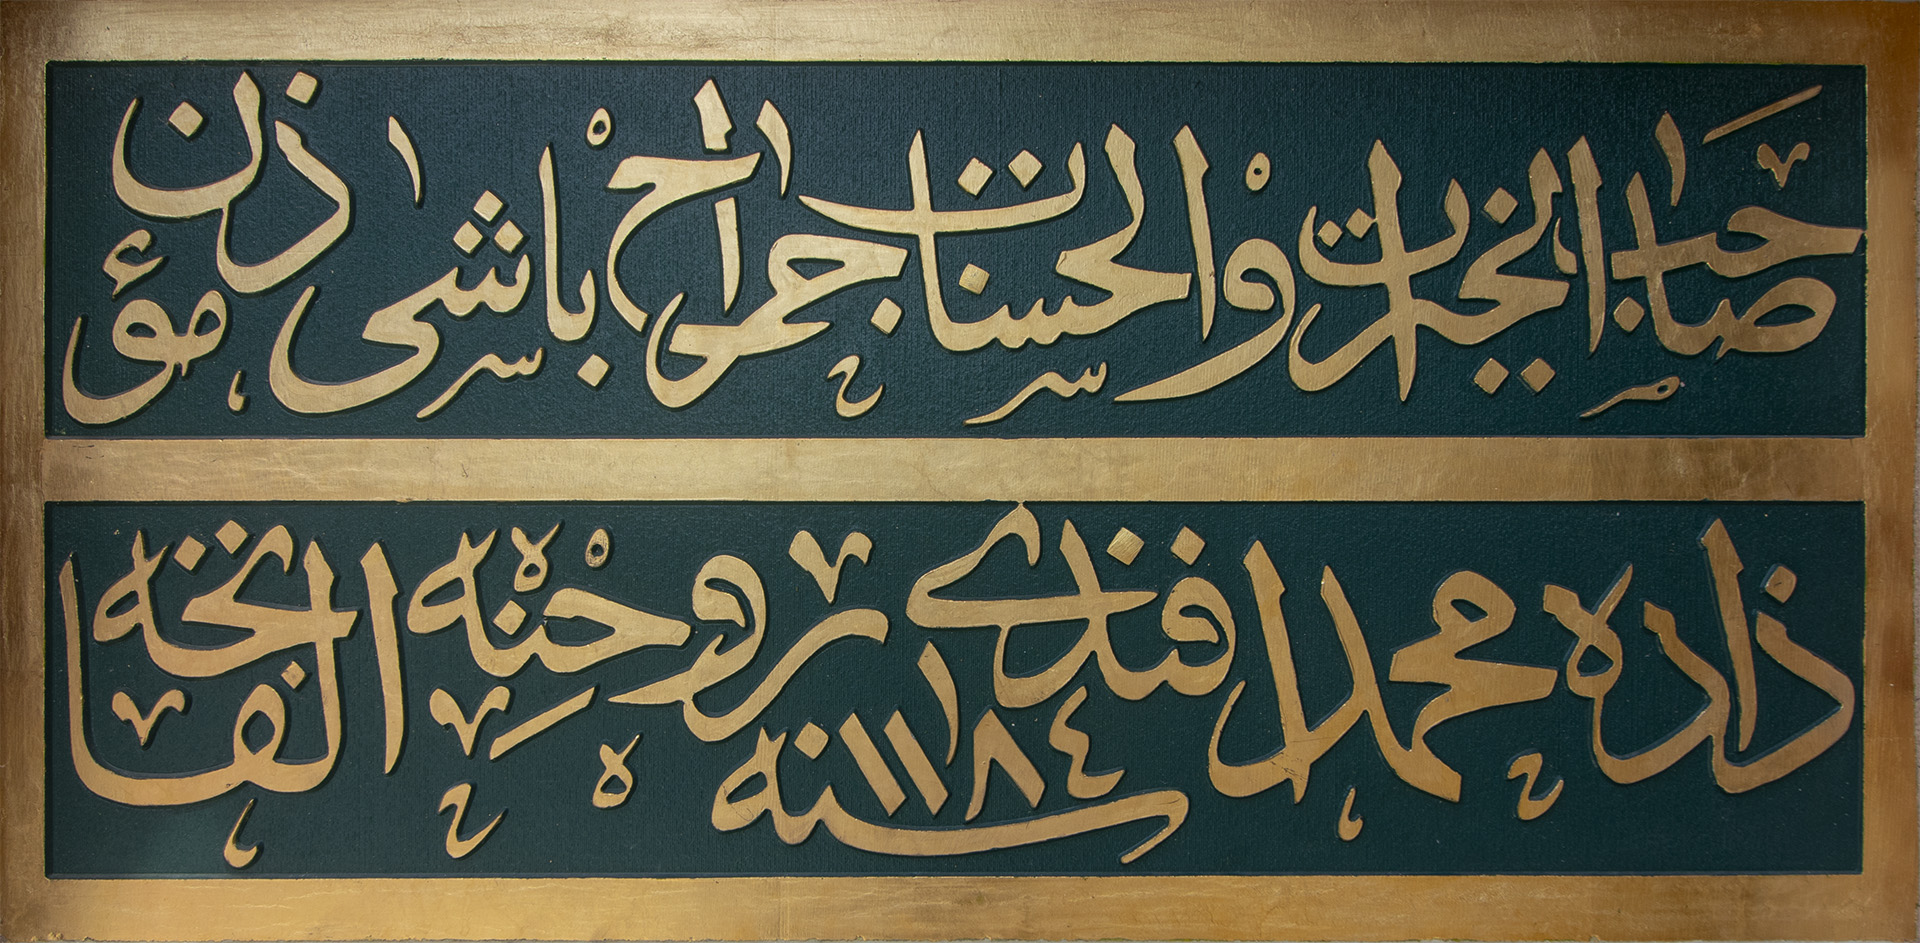 صاحب الخيرات والحسنات جراح باشى مؤذن
ذاده محمد افندى روحنه الفاتحه
سنه ١١٨٤